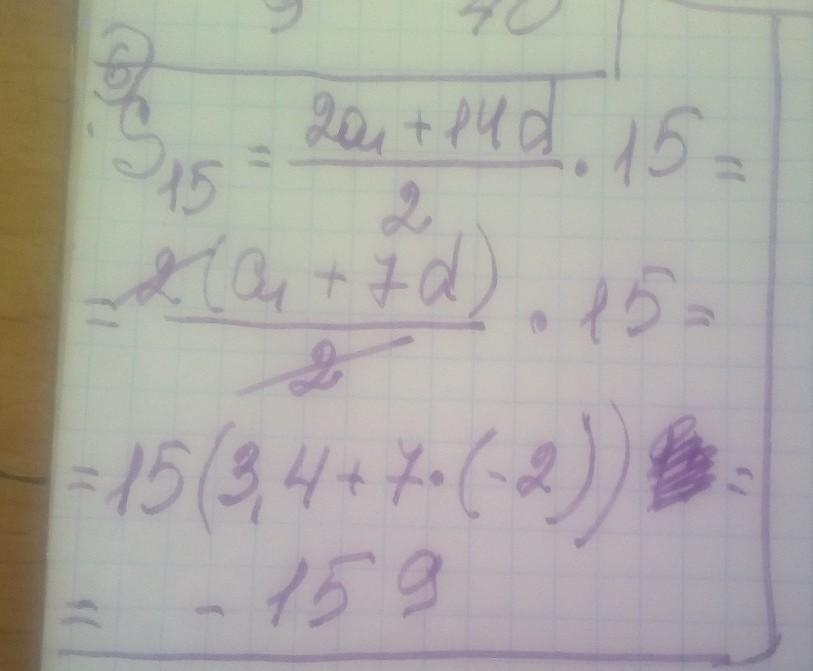 б)
S₁₅ = (2a₁ + 14d)/2 · 15 =
= 2(a₁ + 7d)/2 · 15 =
= 15(3,4 + 7·(-2)) =
= -159